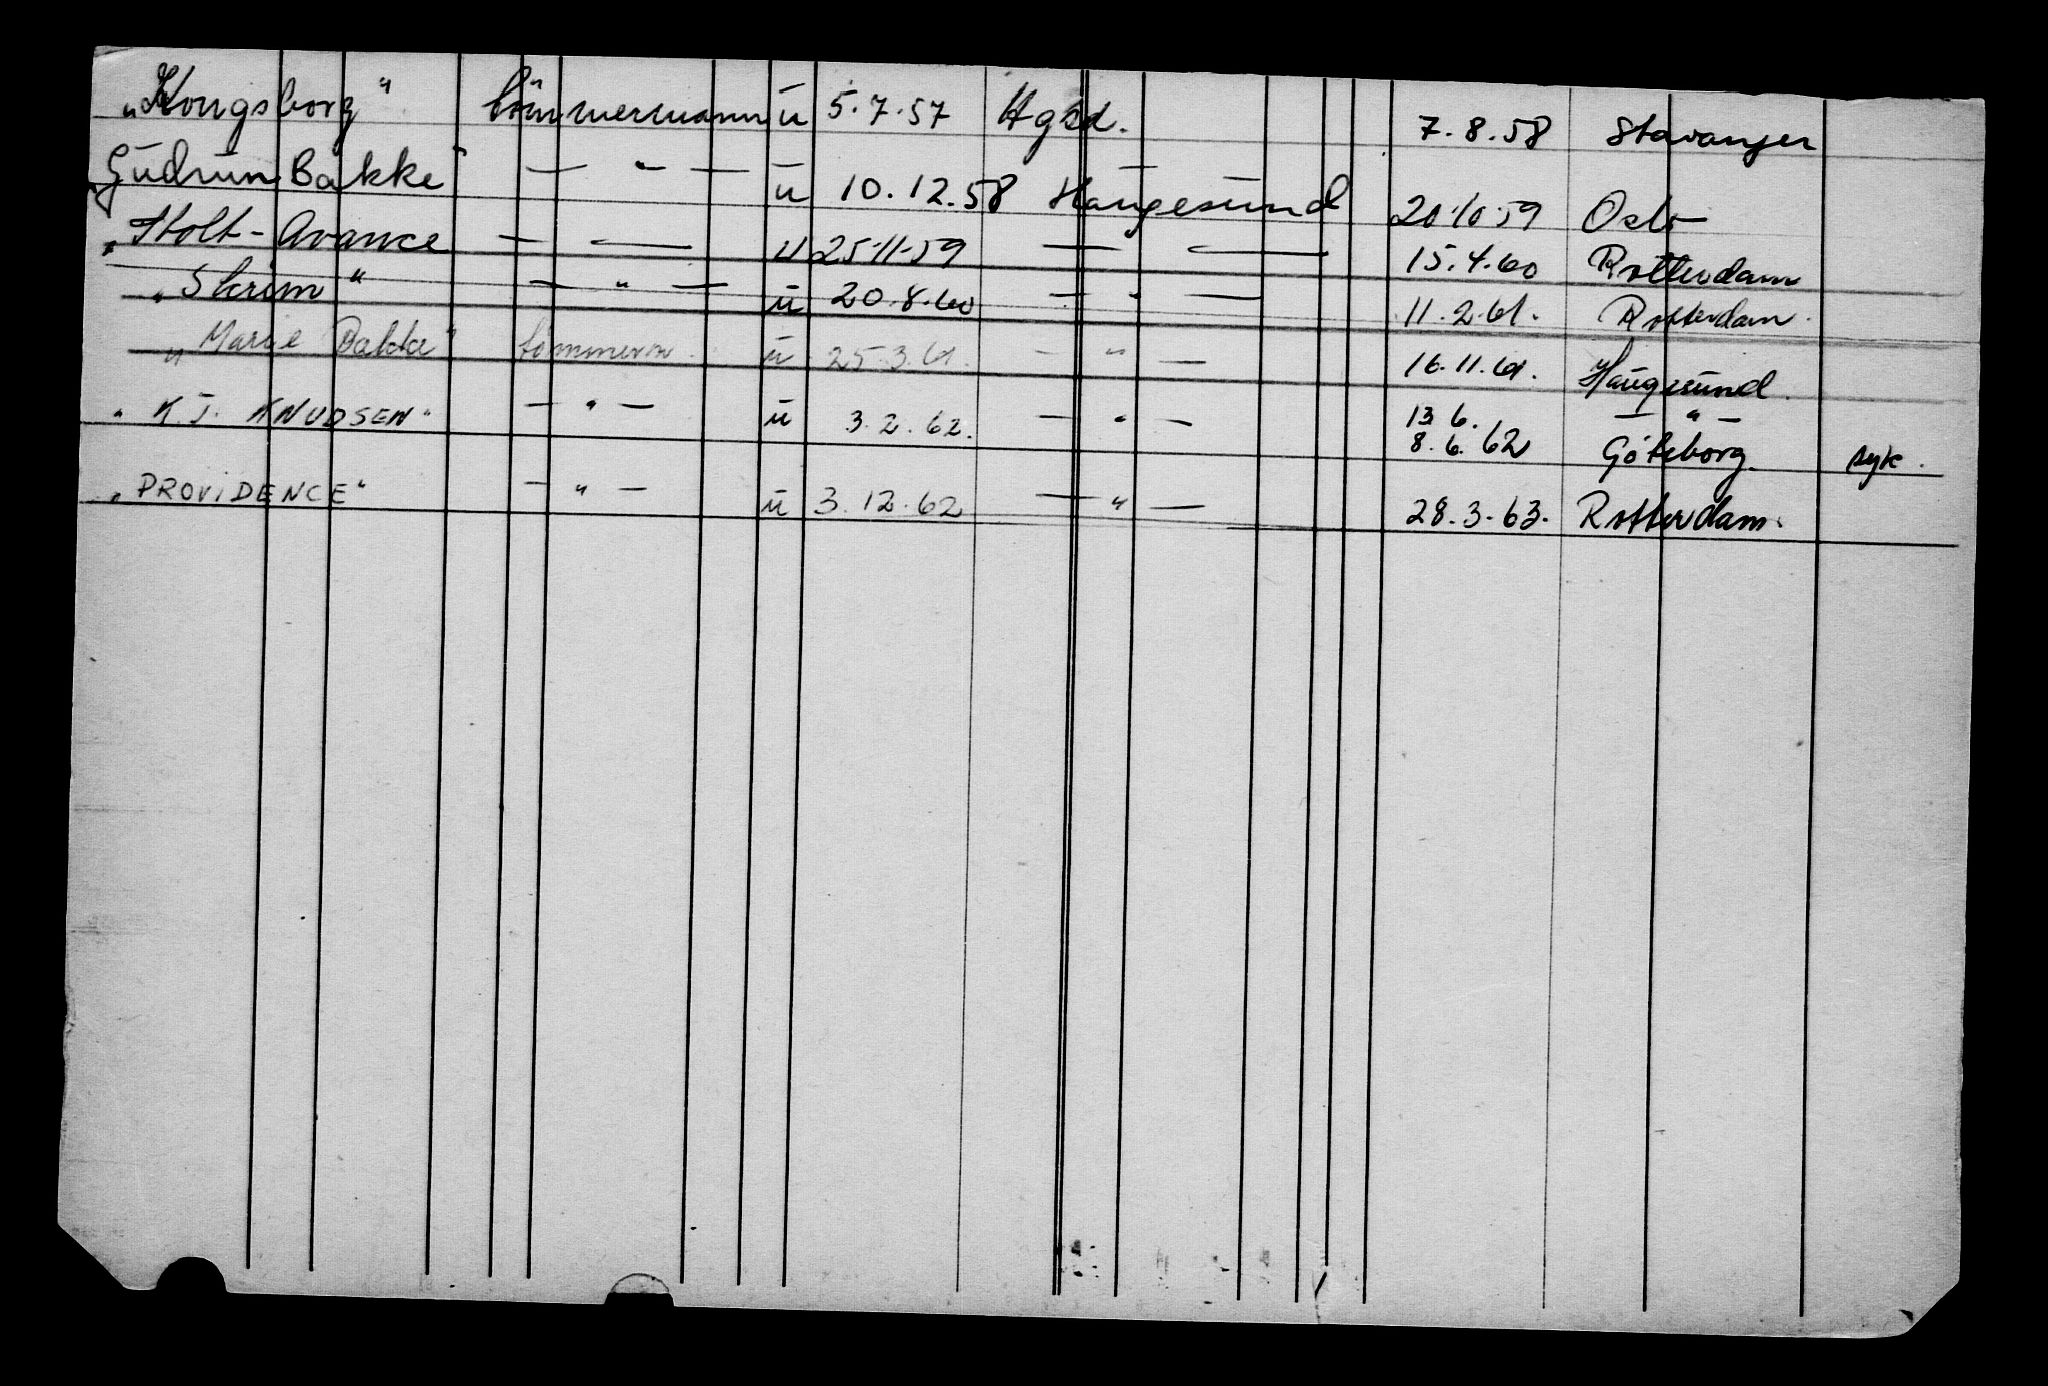 "Kongsborg" tömmermann u 5.7.57 Hgsd. 7.8.58 Stavanger
"Gudrun Bakke" — " — u 10.12.58 Haugesund 20.10.59 Oslo
"Stolt-Avance — — u 25.11.59 — — 15.4.60 Rotterdam
"Skrim" — " — u 20.8.60 — " — 11.2.61. Rotterdam.
"Marie Bakke" tömmerm. u 25.3.61. — " — 16.11.61. Haugesund.
"K.J. KNUDSEN" — " — u 3.2.62. — " — 13.6. — " —
8.6.62 Göteborg. syk.
"PROVIDENCE" — " — u 3.12.62 — " — 28.3.63. Rotterdam.